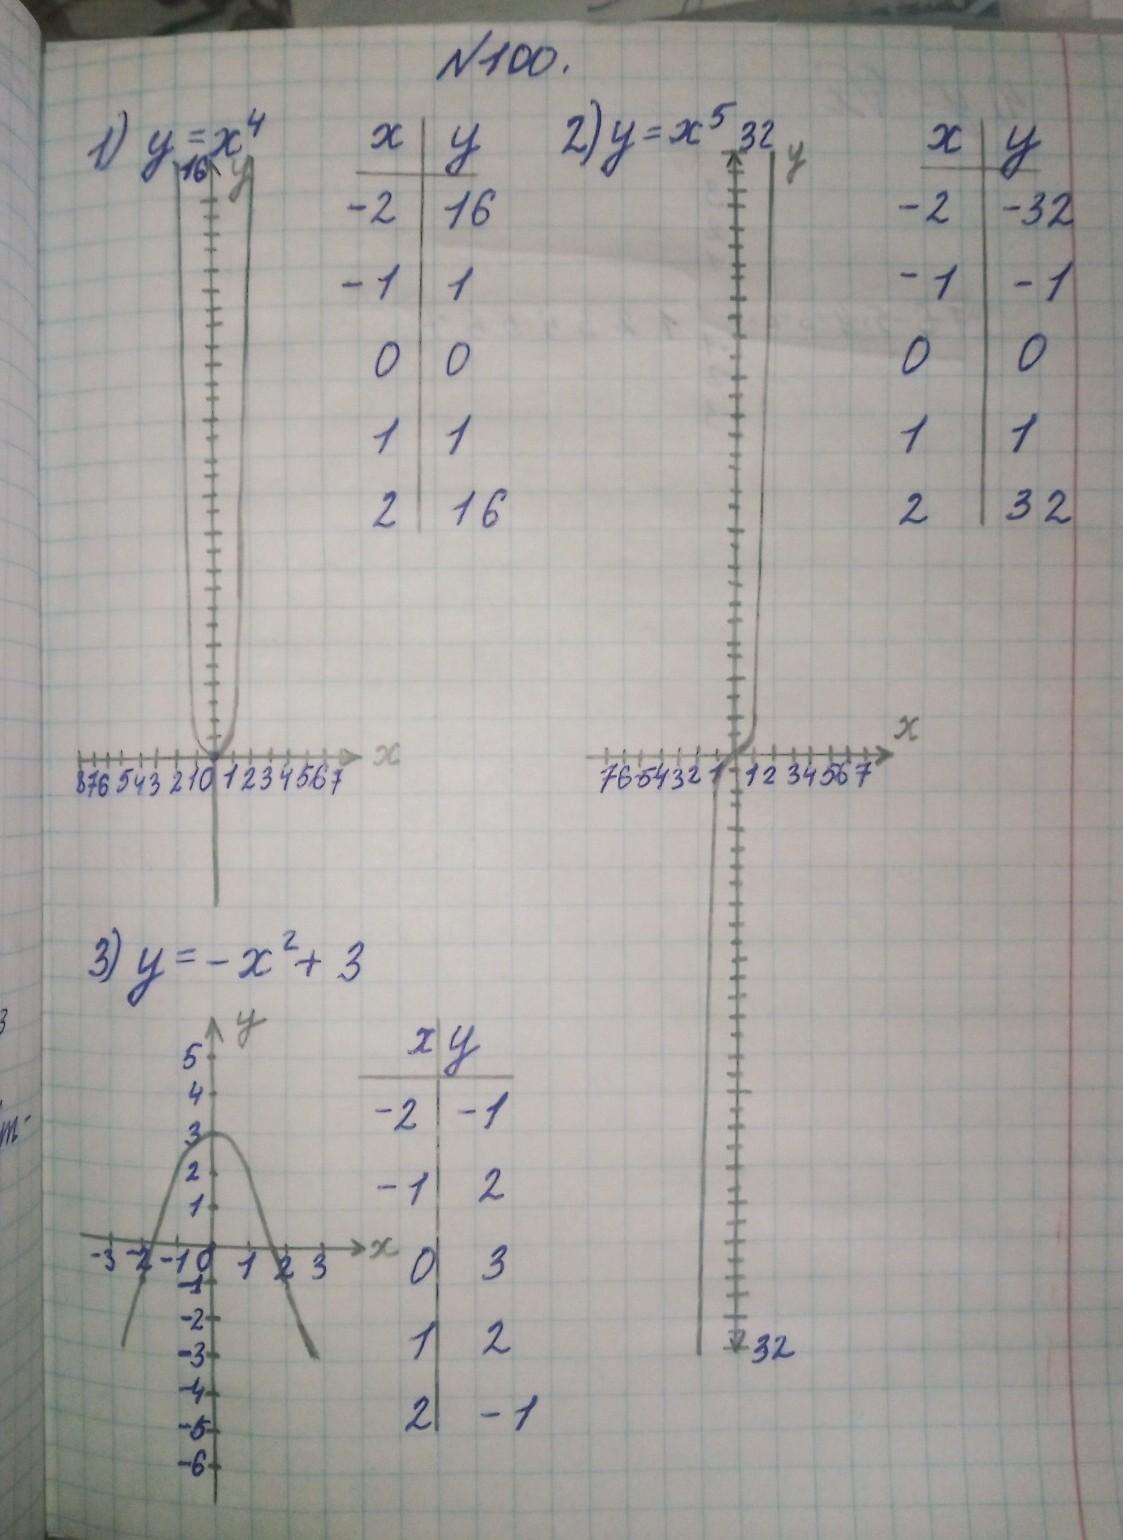 N100.
1) y = x⁴
x y
-2 16
-1 1
0 0
1 1
2 16
16 y
8 7 6 5 4 3 2 1 0 1 2 3 4 5 6 7 x
2) y = x⁵
x y
-2 -32
-1 -1
0 0
1 1
2 32
32 y
7 6 5 4 3 2 1 1 2 3 4 5 6 7 x
32
3) y = -x² + 3
y
5
4
3
2
1
-3 -2 -1 0 1 2 3 x
-1
-2
-3
-4
-5
-6
x y
-2 -1
-1 2
0 3
1 2
2 -1